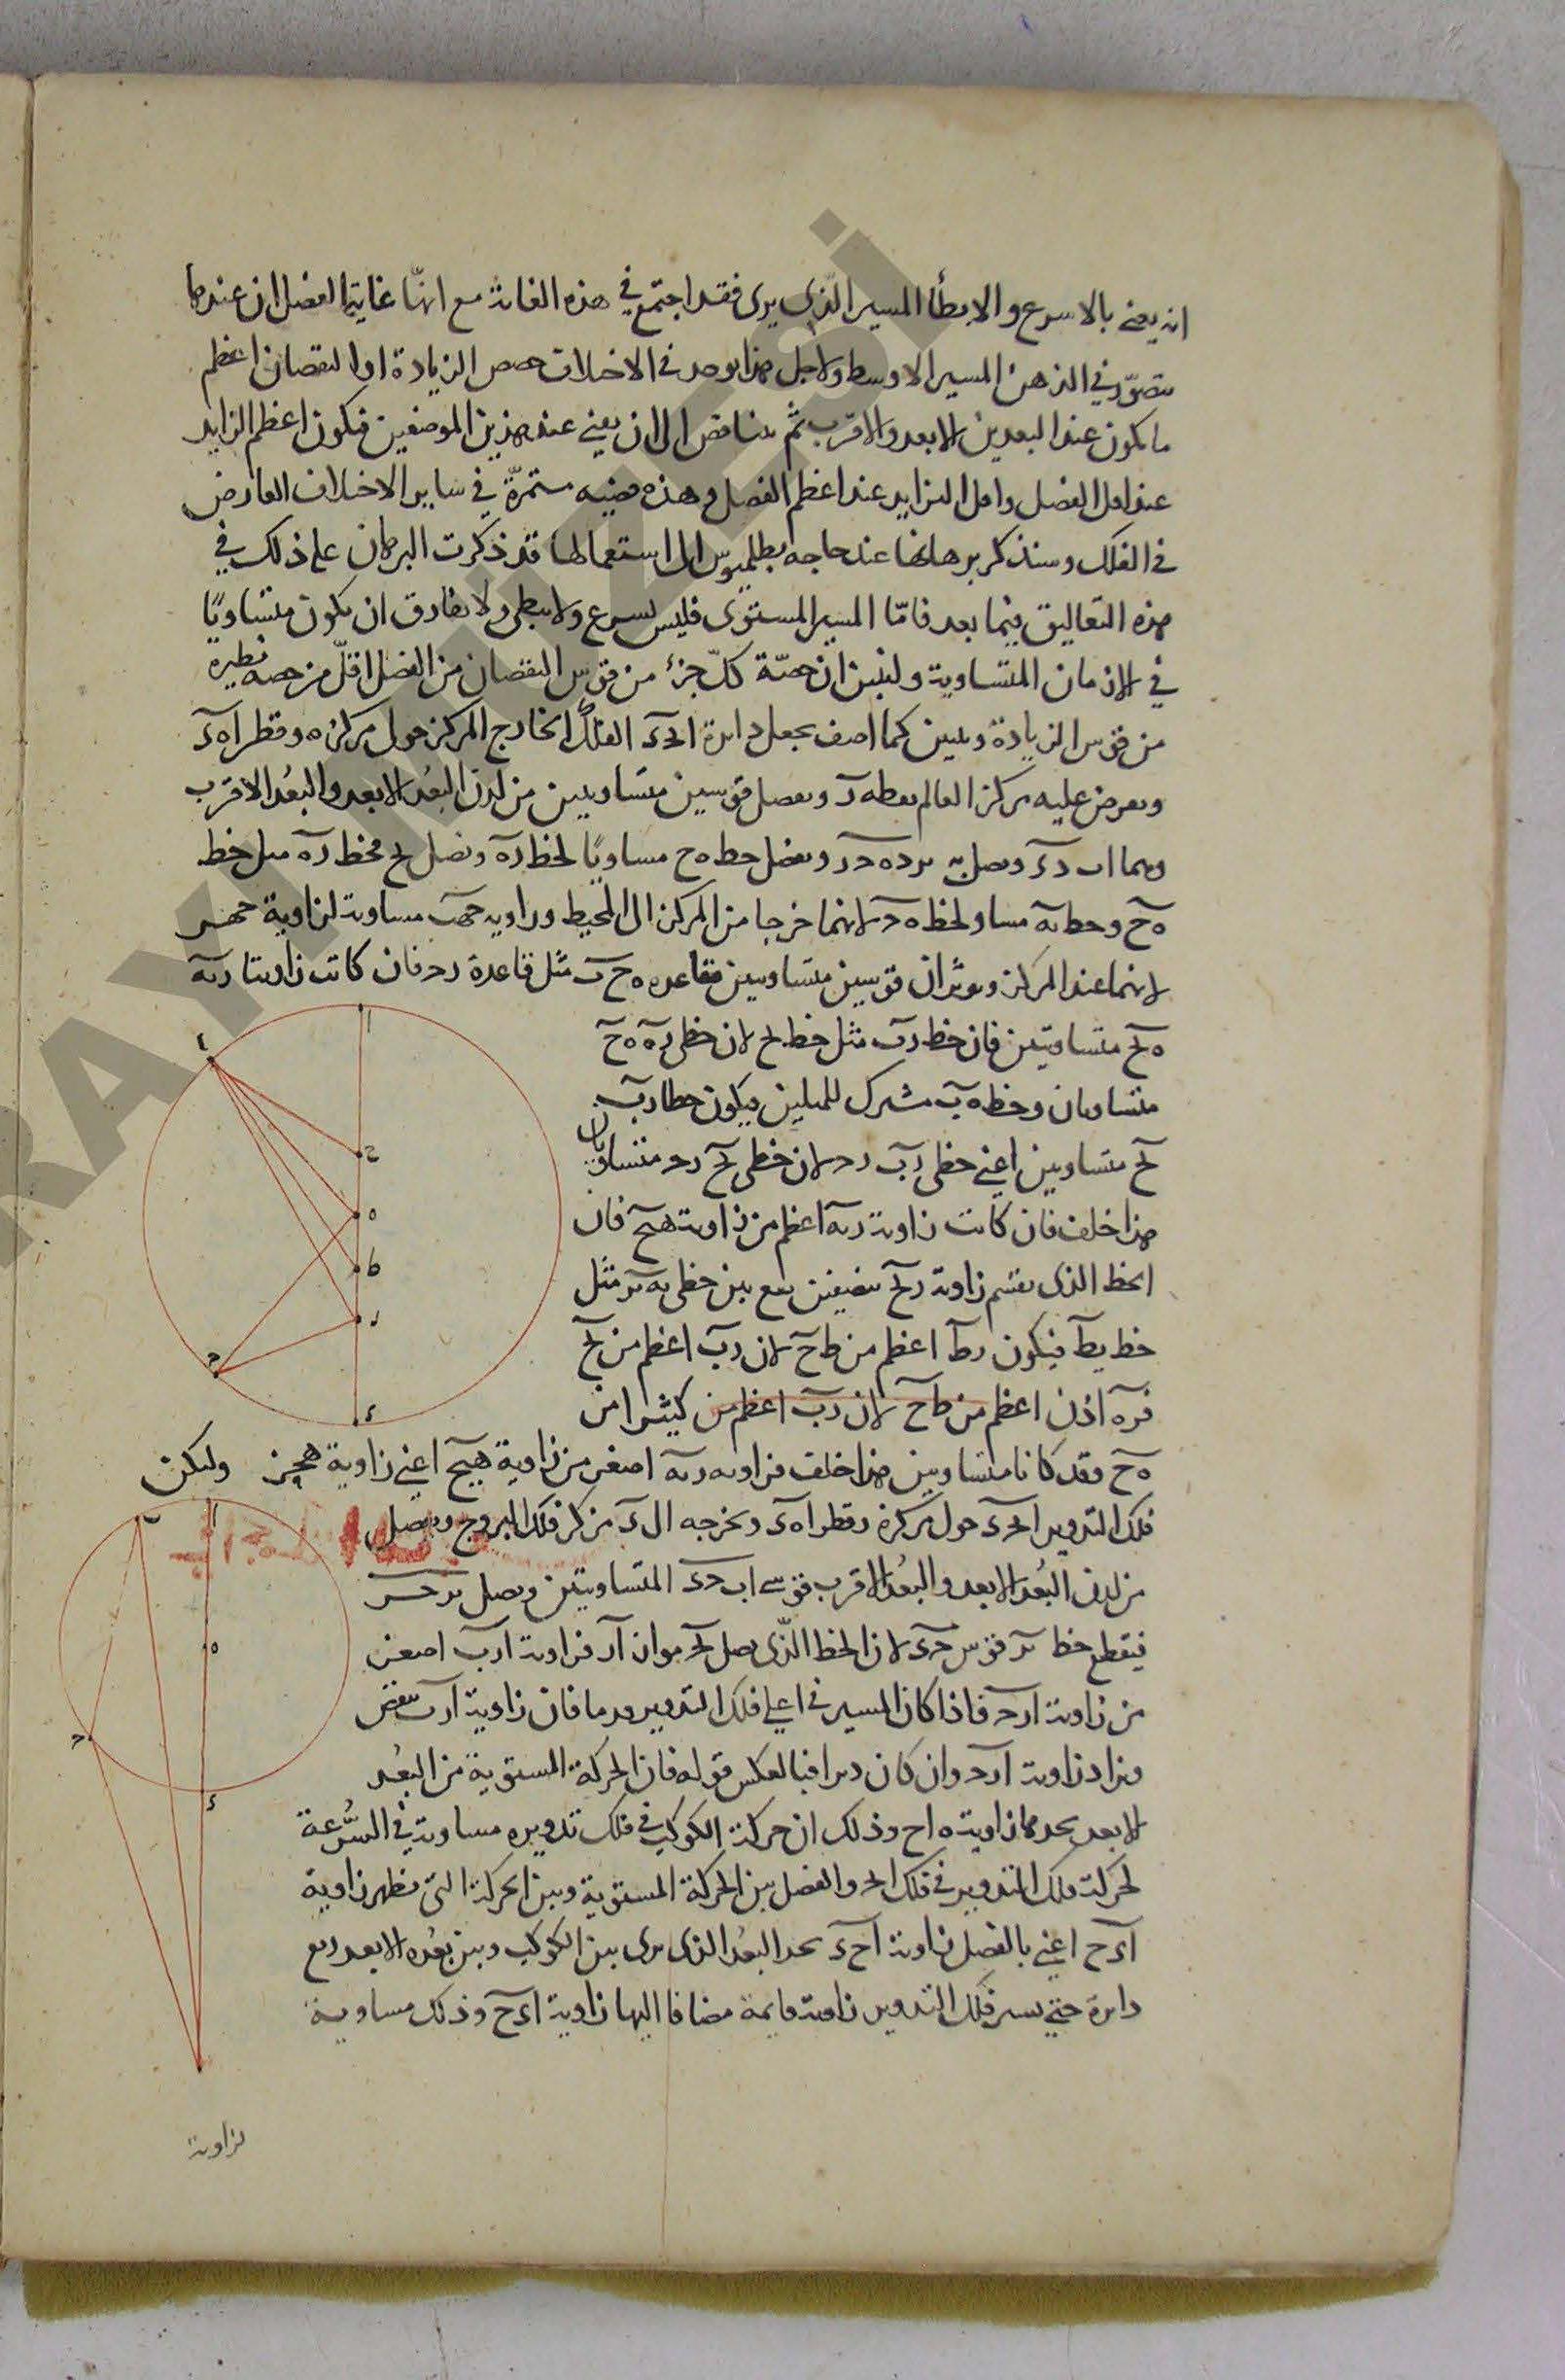 انه يعنى بالاسرع والابطأ المسير الذى يرى فقد اجتمع في هذه الغاية مع انها غايتا الفضل ان عندها
يتصوّر في الذهن المسير الاوسط ولاجل هذا يوجد في الاختلاف حصص الزيادة او النقصان اعظم
ما يكون عند البعدين الابعد والاقرب ثم يتناقص الى ان يفنى عند هذين الموضعين فيكون اعظم التزايد
عند اقل الفضل واقل التزايد عند اعظم الفضل وهذه قضيه مستمرّة في ساير الاختلاف العارض
في الفلك وسنذكر برهانها عند حاجه بطلميوس الى استعمالها قد ذكرت البرهان على ذلك في
هذه التعاليق فيما بعد فامّا المسير المستوى فليس يسرع ولا يبطى ولا يفارق ان يكون متساويًا
في الازمان المتساوية ولنبين ان حصّة كلّ جزء من قوس النقصان من الفضل اقلّ من حصه نظيره
من قوس الزيادة ونبين كما اصف نجعل دايرة ابجد الفلك الخارج المركز حول مركز ه وقطر اه د
ونفرض عليه مركز العالم نقطه ر ونفصل قوسين متساويين من لدن البُعد الابعد والبُعد الاقرب
وهما اب دج ونصل بر ب ه ه ج ج ر ونفصل خط ه ح مساويًا لخط ره ونصل بح فخط ره مثل خط
ه ح وخط به مساو لخط ه ج لانهما خرجا من المركز الى المحيط وزاويه ح ه ب مساويه لزاوية ج ه ر
لانهما عند المركز ويوتران قوسين متساويين فقاعده ح ب مثل قاعدة رج فان كانت زاويتا ر ب ه
ه ب ح متساويتين فان خط رب مثل خط بح لان خطى ره ه ح
متساويان وخط ه ب مشترك للمثلثين فيكون خطا رب
بح متساويين اعنى خطى رب رج لان خطى بح رج متساويان
هذا خلف فان كانت زاوية ر ب ه اعظم من زاوية ه ب ح فان
الخط الذى يقسم زاوية ر ب ح بنصفين يقع بين خطى به بر مثل
خط ب ط فيكون رط اعظم من ط ح لان رب اعظم من بح
فره اذن اعظم من ط ح لان رب اعظم من كثيرا من
ه ح وقد كانا متساويين هذا خلف فزاويه ر ب ه اصغر من زاوية ه ب ح اعنى زاوية ه ج ر وليكن
فلك التدوير ابجد حول مركز ه وقطر اه د ونخرجه الى ر مركز فلك البروج ونفصل
من لدن البُعد الابعد والبُعد الاقرب قوسى اب ج د المتساويتين ونصل بر ج ر
فيقطع خط بر قوس ج د لان الخط الذّى يصل بج مواز ار فزاوية ارب اصغر
من زاوية ارج فاذا كان المسير في اعلى فلك التدوير قدما فان زاوية ارب تنقص
وتزاد زاوية ارج وان كان ورا فبالعكس قوله فان الحركة المستوية من البُعد
الابعد يحدها زاوية ه ا ح وذلك ان حركة الكوكب في فلك تدويره مساوية في السُّرعة
لحركة فلك التدوير في فلك ابج والفضل بين الحركة المستوية وبين الحركة التى تظهر زاوية
اد ح اعنى بالفصل زاوية اح د يحد البعُد الذى يرى بين الكوكب وبين بعُده الابعد ربع
دايرة حتى يسير فلك التدوير زاوية قايمة مضافا اليها زاوية اد ح وذلك مساوية
لزاوية